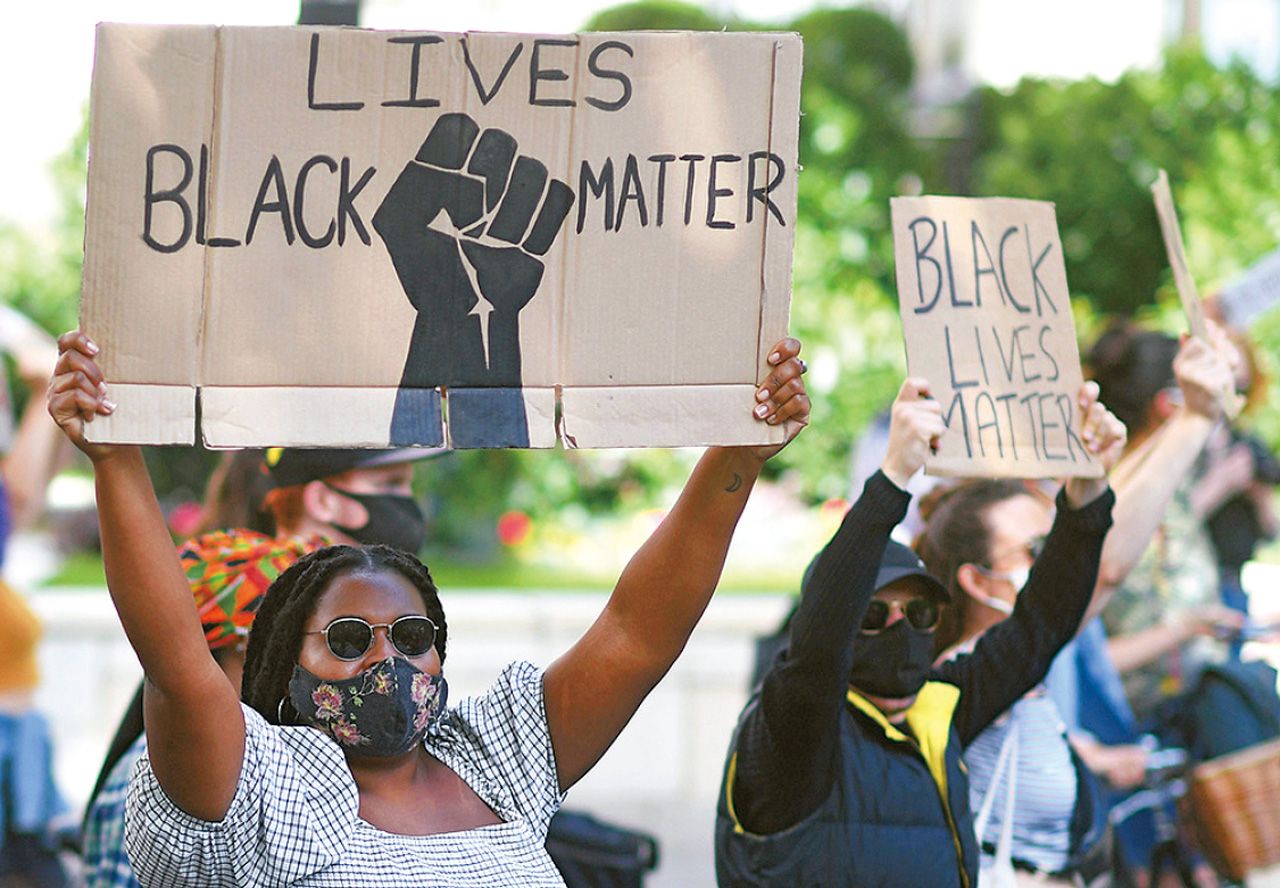 LIVES
BLACK MATTER
BLACK
LIVES
MATTER